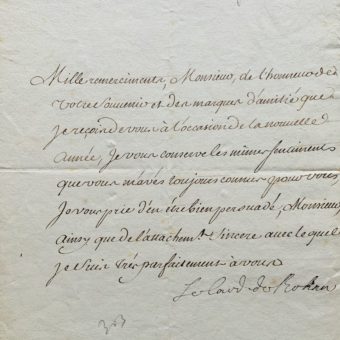 Mille remerciments, Monsieur, de l'honneur de
votre souvenir et des marques d'amitié que
je reçois de vous à l'occasion de la nouvelle
année, Je vous conserve les mêmes sentiments
que vous m'avés toujours connus pour vous,
Je vous prie d'en être bien persuadé, Monsieur,
ainsy que de l'attachemt. sincere avec lequel
je suis très parfaitement à vous
Le Card. de Rohan